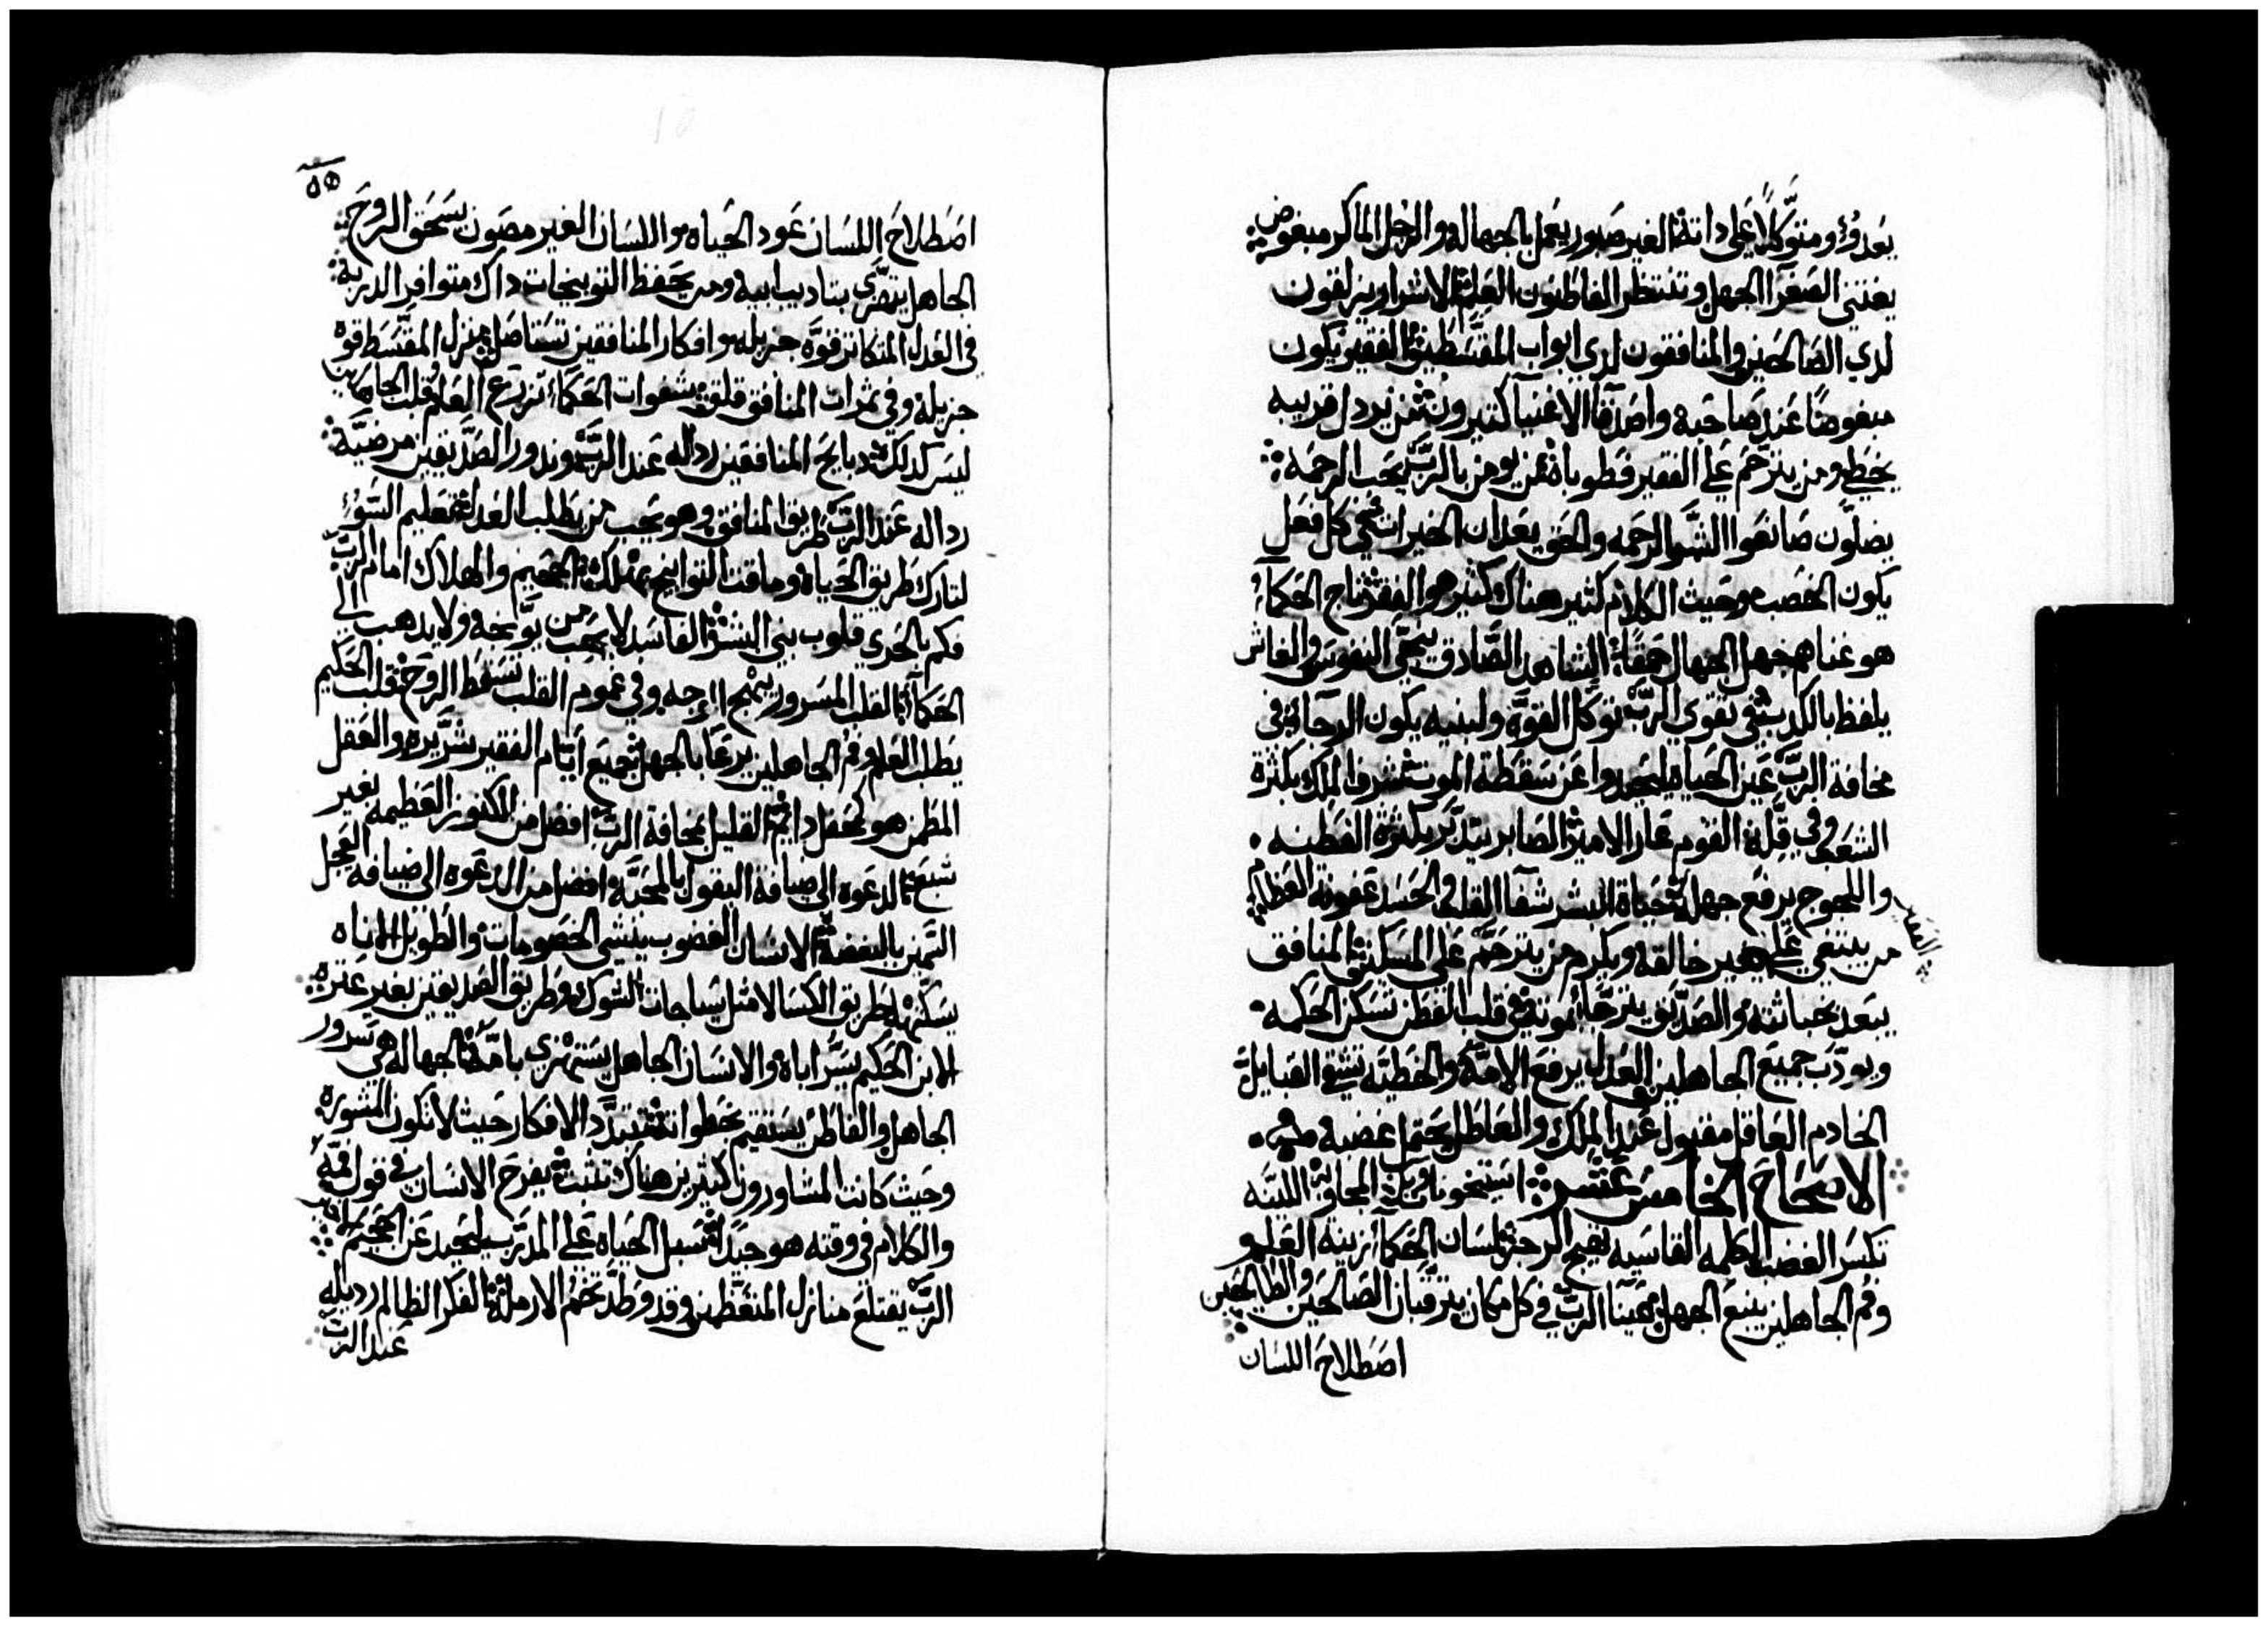 يعدوُ ومتوكلاً على داته الغير صبور يعمل بالجهاله والرجل الماكر مبغوض
يغتني الصغرا الجهل وتنتظر الفاطنون العلم الاشرار يزلقون
لدي الصالحين والمنافقون لدي ابواب المقسطين الفقير يكون
مبغوضاً عند صاحبه واصدقا الاغنيا كتيرون من يردل قريبه
يخطي ومن يترحم علي الفقير فطوباه من يومن بالرب يحب الرحمه
يضلون صانعوا الشر الرحمه والحق يعدان الخيرات في كل فعل
يكون الخصب وحيث الكلام كتير هناك كتير هو الفقر تاج الحكآء
هو غناهم جهل الجهال حمقاً الشاهد الصادق ينجي النفوس والغاش
يلفظ بالكدب في تقوي الرب توكل القوه ولبنيه يكون الرجآ
مخافة الرب عين الحياه ليحيدوا عن سقطة الموت شرف الملك بكثرة
الشعب وفي قلة القوم عار الامير الصابر يتدبر بكثرة الفطنه
واللجوج يرفع جهله حياة البشر شفآ القلب والحسد عفونة العظام
من يبتغي علي الفقير يعير خالقه ويكرم من يترحم علي المسكين المنافق
يبعد بخباثته والصديق يترجا موته في قلب الفطن تسكن الحكمه
ويودب جميع الجاهلين العدل يرفع الامه والخطيه تشقي القبايل
الخادم العاقل مقبول عند الملك والعاطل يحتمل غضبه
الاصحاح الخامس عشر المجاوبة اللينه
تكسر الغضب الكلمه القاسيه تهيج الرجز لسان الحكآء زينة العلم و
وفم الجاهلين ينبع الجهل عينا الرب في كل مكان يترقبان الصالحين والطالحين
اصطلاح اللسان
اصطلاح اللسان عود الحياه واللسان الغير مصون يسحق الروح
الجاهل يتهزى بتاديب ابيه ومن يحفظ التوبيخات داك متوافر الدربه
في العدل المتكاتر قوه جزيله وافكار المنافقين تستاصل منزل المقسط قوه
جزيله وفي ثمرات المنافق قلق شفوات الحكآء تزرع العلم قلب الجاهلين
ليس كدلك دبايح المنافقين رداله عند الرب وندور الصديقين مرضيه
رداله عند الرب طريق المنافق وهو يحب من يطلب العدل تعليم السوُ
لتارك طريق الحياه وماقت التوابيخ يهلك الجحيم والهلاك امام الرب
فكم بالحري قلوب بني البشر الفاسد لا يحب من يوبخه ولا يدهب الي
الحكآء القلب المسرور يبهج الوجه وفي غموم القلب تسقط الروح قلب الحكيم
يطلب العلم وفم الجاهلين يرعا بالجهل جميع ايام الفقير شريره والعقل
المطمن هو كمحفل دايم القليل بمخافة الرب افضل من الكنوز العظيمه بغير
شبع الدعوه الي ضيافة البقول بالمحبه افضل من الدعوه الي ضيافة العجل
الثمين بالبغضه الانسان الغضوب ينشي الخصومات والطويل الاناه
يسكنها طريق الكسالا مثل سياجات الشوك وطريق الصديقين بغير عتره
الابن الحكيم يسر اباه والانسان الجاهل يستهزي بامه الجهاله هي سرور
الجاهل والفاطن يستقيم بخطواته تتبدد الافكار حيث لا تكون المشوره
وحيث كانت المشاورون كتيرين هناك تثبت يفرح الانسان في قول فمه
والكلام في وقته هو جيد سبل الحياه علي المدرب ليحيد عن الجحيم
الرب يقتلع منازل المتعظمين وقد وطد تخم الارمله الفكر الظالم رديله
عند الرب